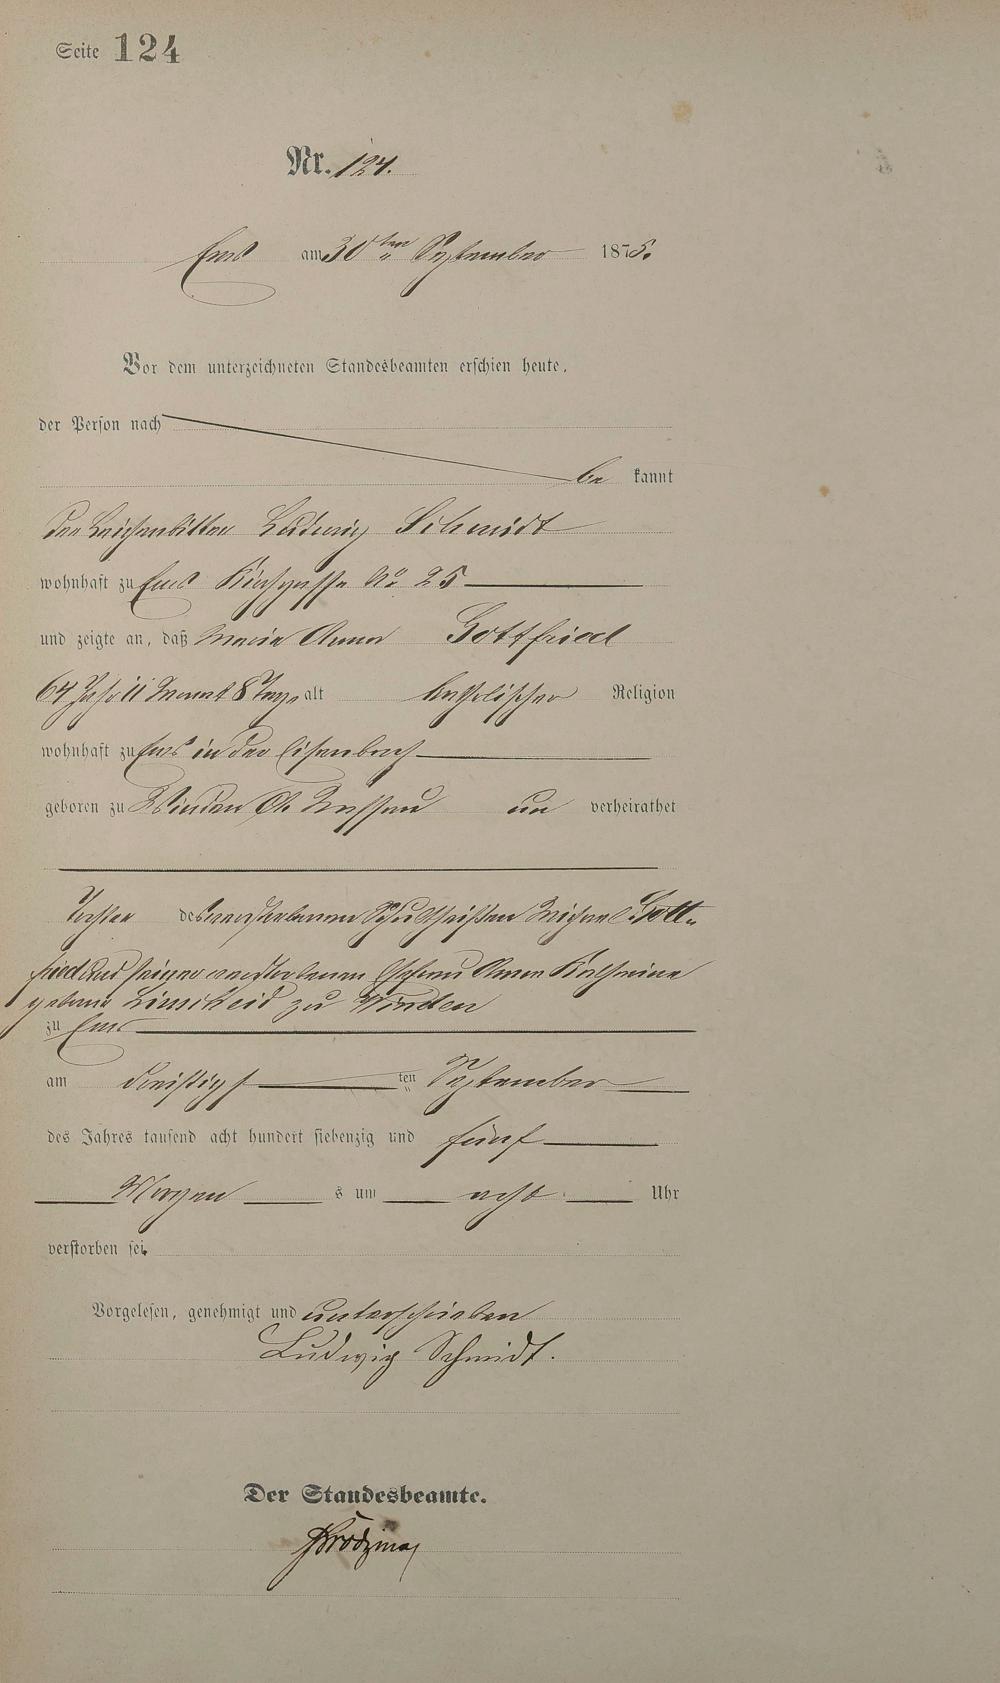 Seite 124
Nr. 124.
Ems am 30ten September 1875.
Vor dem unterzeichneten Standesbeamten erschien heute,
der Person nach
be kannt
der Leichenbitter Ludwig Schmidt
wohnhaft zu Ems Kirchgasse No. 25
und zeigte an, daß Maria Anna Gottfried
64 Jahr 11 Monat 8 Tage alt katholischer Religion
wohnhaft zu Ems in der Eisenbach
geboren zu Winden A. Nassau un verheirathet
Tochter des verstorbenen Schultheißen Michael Gott-
fried und seiner verstorbenen Ehefrau Anna Katharina
geborne Linscheid zu Winden
zu Ems
am dreißigs ten September
des Jahres tausend acht hundert siebenzig und fünf
Morgen s um acht Uhr
verstorben sei.
Vorgelesen, genehmigt und unterschrieben
Ludwig Schmidt.
Der Standesbeamte.